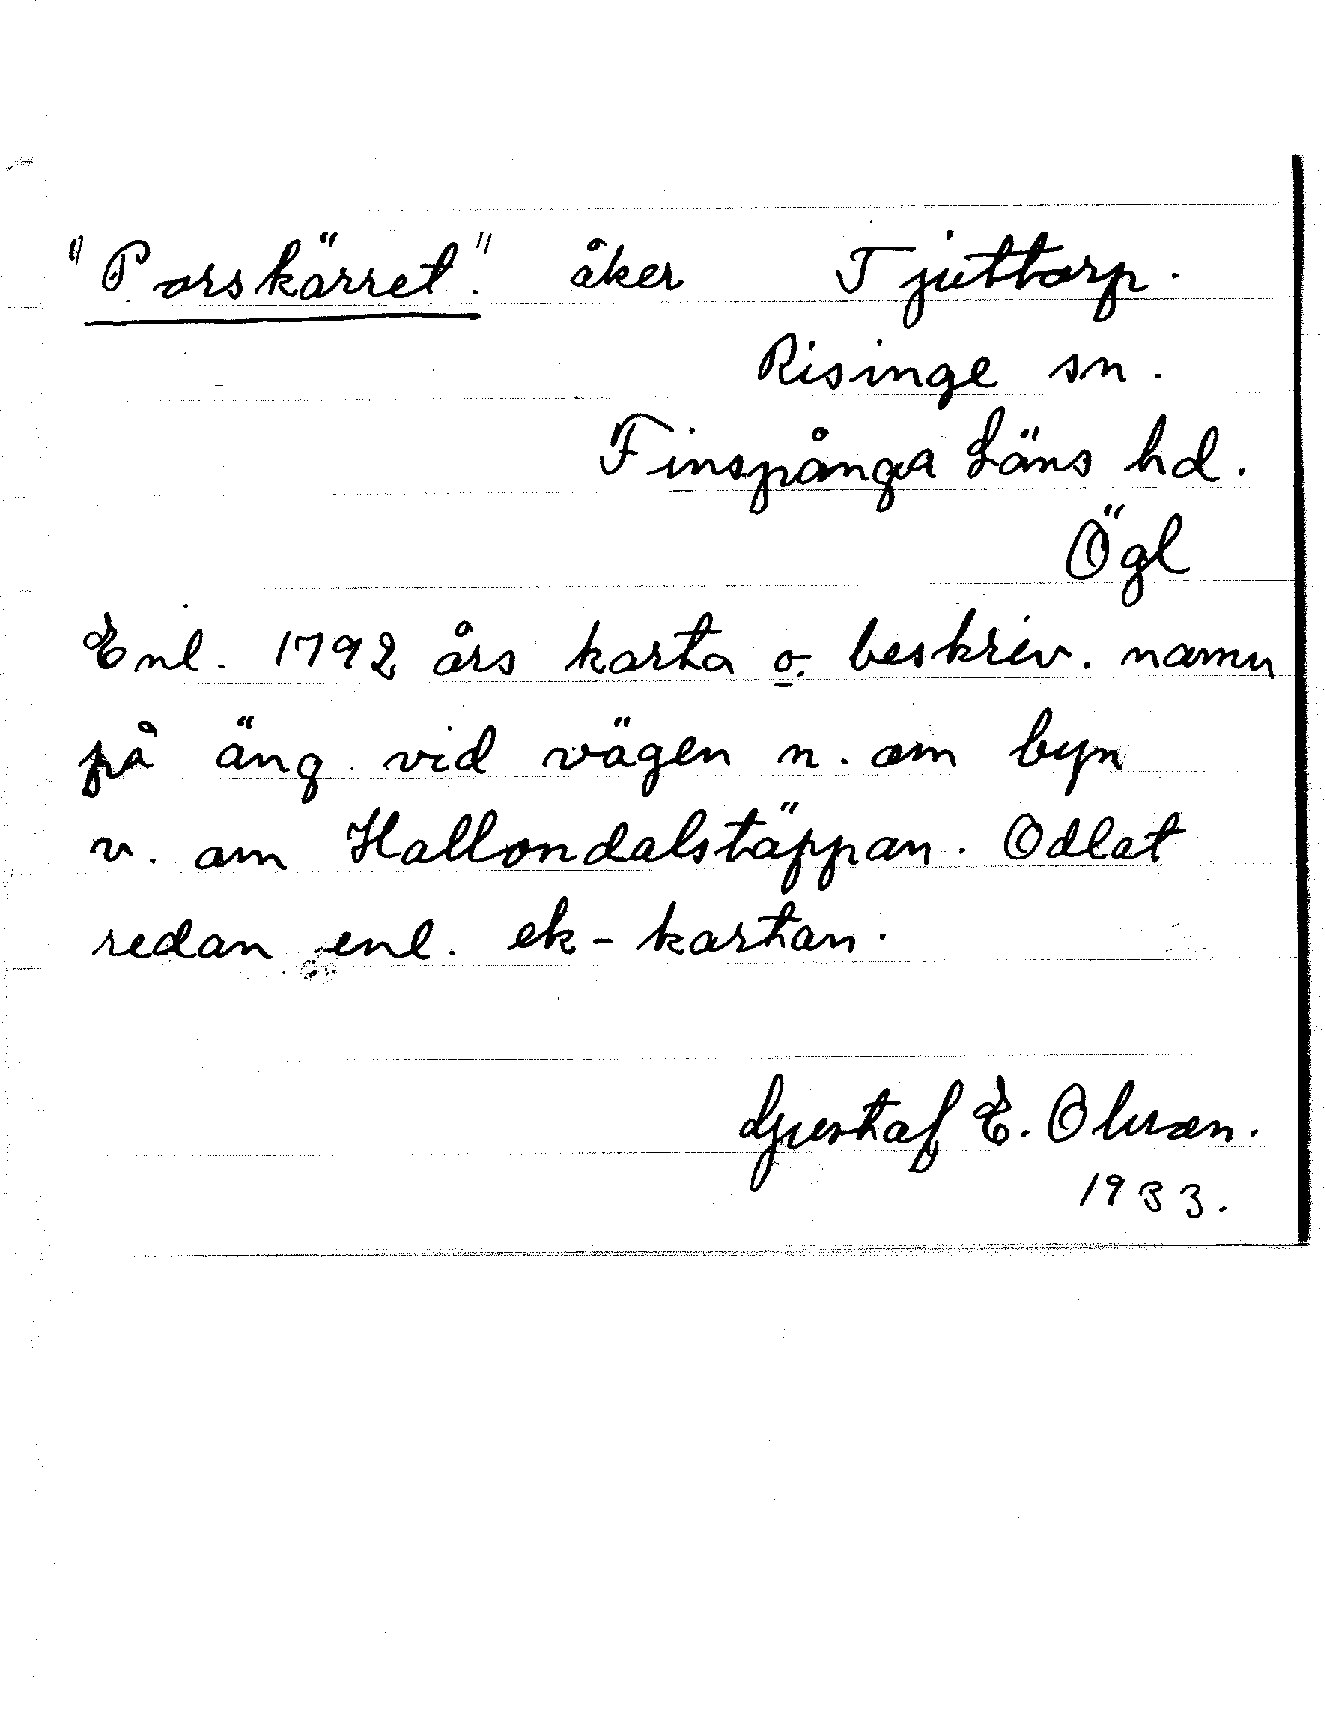 "Porskärret." åker Tjuttorp.
Risinge sn.
Finspånga Läns hd.
Ögl
Enl. 1792 års karta o. beskriv. namn
på äng vid vägen n. om byn
v. om Hallondalstäppan. Odlat
redan enl. ek-kartan.
Gustaf E. Olsson.
1933.